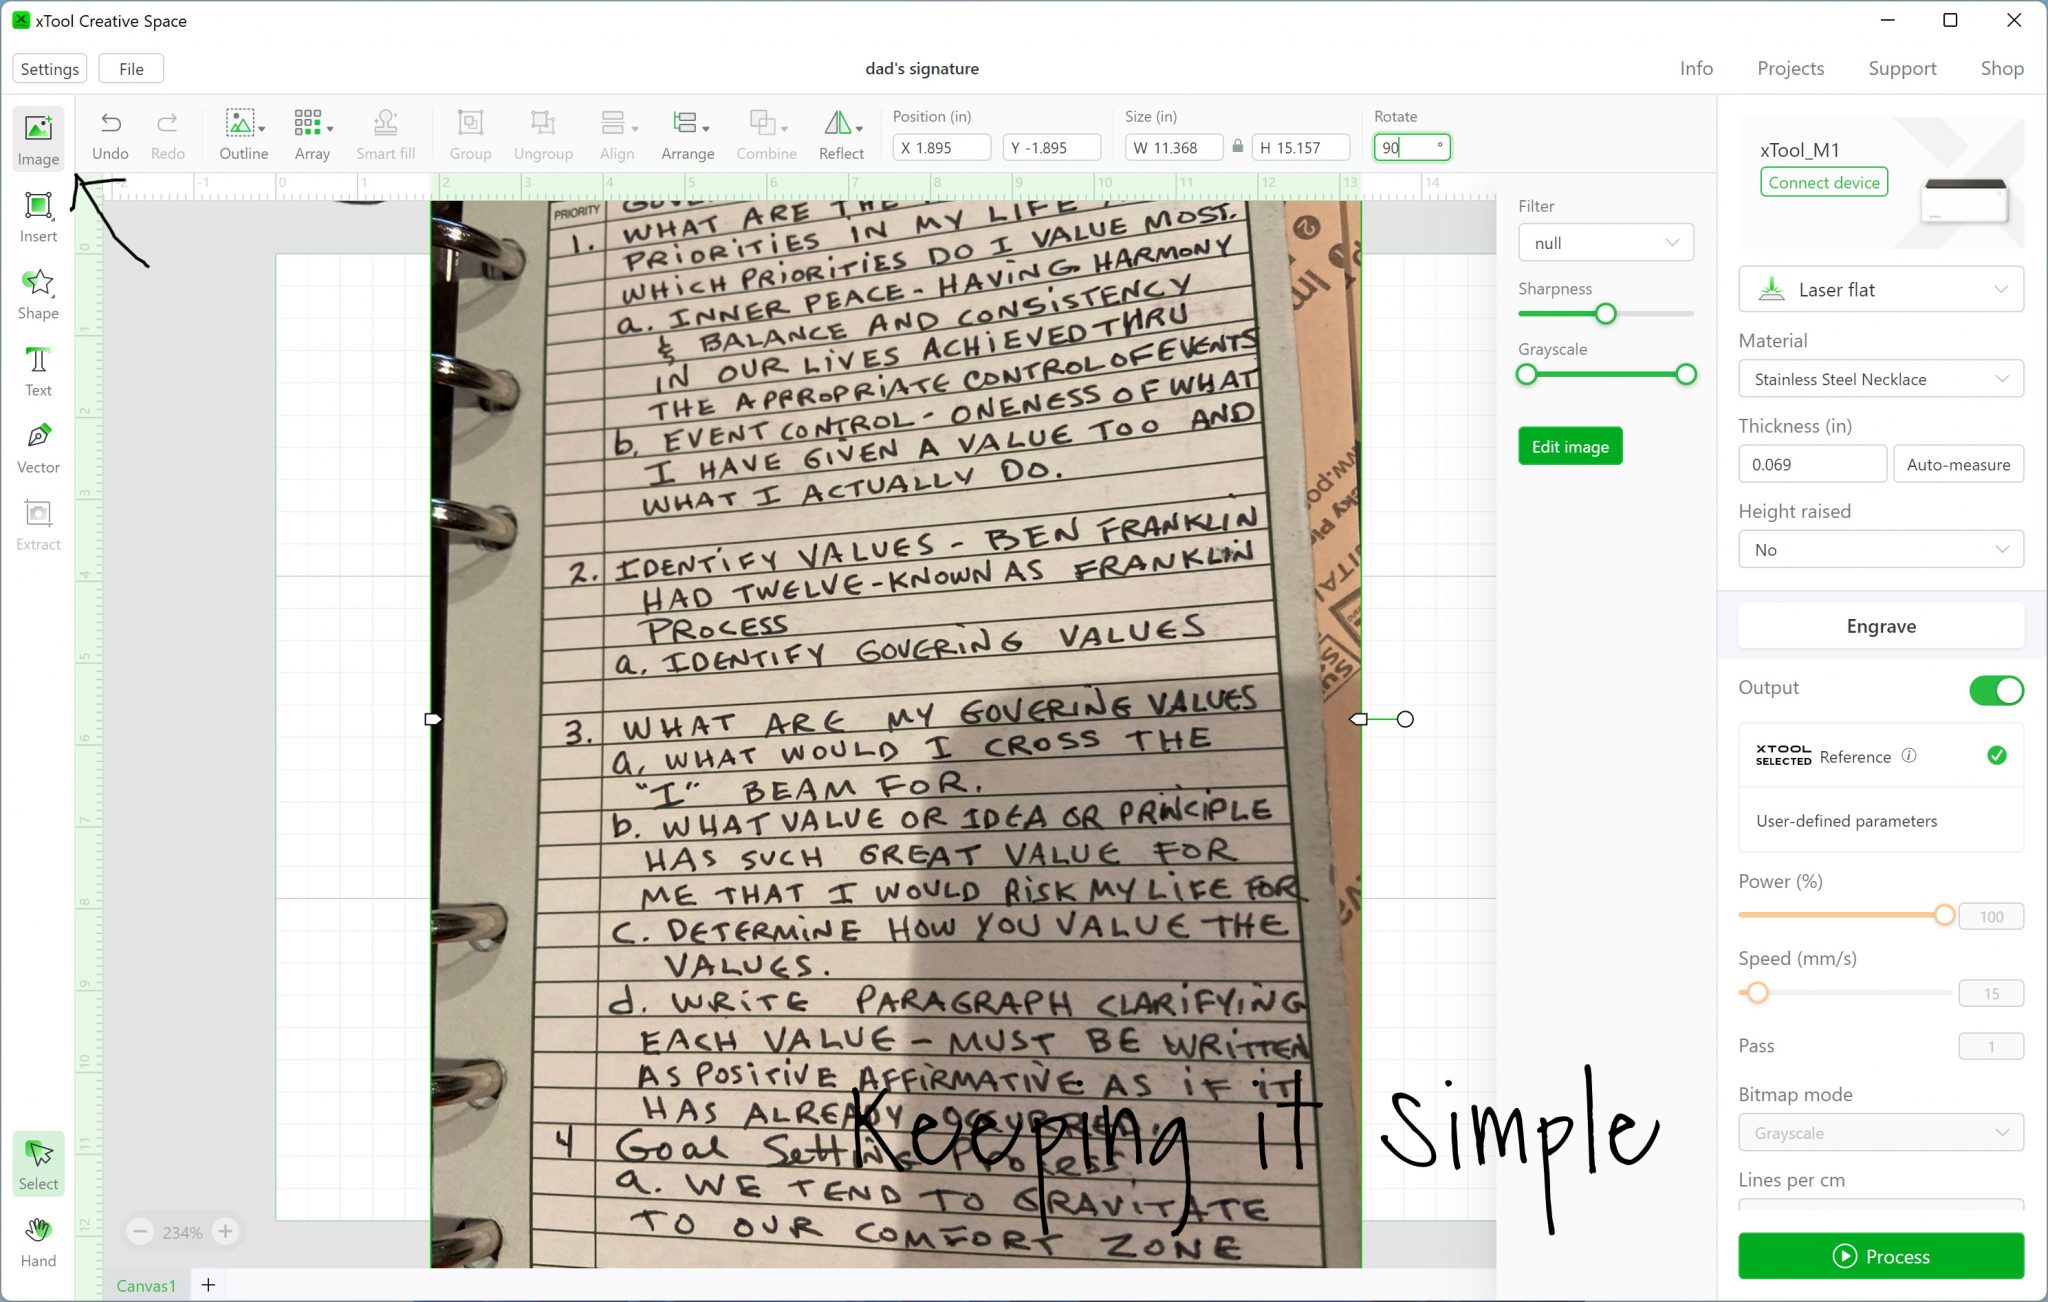 xTool Creative Space
Settings File dad's signature Info Projects Support Shop
Image Undo Redo Outline Array Smart fill Group Ungroup Align Arrange Combine Reflect
Position (in) Size (in) Rotate
X 1.895 Y -1.895 W 11.368 H 15.157 90 °
-2 -1 0 1 2 3 4 5 6 7 8 9 10 11 12 13 14
0 1 2 3 4 5 6 7 8 9 10 11 12
Insert
Shape
Text
Vector
Extract
Select
Hand
PRIORITY
1. WHAT ARE THE
PRIORITIES IN MY LIFE
WHICH PRIORITIES DO I VALUE MOST.
a. INNER PEACE - HAVING HARMONY
& BALANCE AND CONSISTENCY
IN OUR LIVES ACHIEVED THRU
THE APPROPRIATE CONTROL OF EVENTS
b. EVENT CONTROL - ONENESS OF WHAT
I HAVE GIVEN A VALUE TOO AND
WHAT I ACTUALLY DO.
2. IDENTIFY VALUES - BEN FRANKLIN
HAD TWELVE - KNOWN AS FRANKLIN
PROCESS
a. IDENTIFY GOVERING VALUES
3. WHAT ARE MY GOVERING VALUES
a, WHAT WOULD I CROSS THE
"I" BEAM FOR.
b. WHAT VALUE OR IDEA OR PRINCIPLE
HAS SUCH GREAT VALUE FOR
ME THAT I WOULD RISK MY LIFE FOR
C. DETERMINE HOW YOU VALUE THE
VALUES.
d. WRITE PARAGRAPH CLARIFYING
EACH VALUE - MUST BE WRITTEN
AS POSITIVE AFFIRMATIVE AS IF IT
HAS ALREADY OCCURRED.
4 Goal Setting Process
a. WE TEND TO GRAVITATE
TO OUR COMFORT ZONE
Keeping it simple
234%
Canvas1
Filter
null
Sharpness
Grayscale
Edit image
xTool_M1
Connect device
Laser flat
Material
Stainless Steel Necklace
Thickness (in)
0.069 Auto-measure
Height raised
No
Engrave
Output
XTOOL SELECTED Reference
User-defined parameters
Power (%)
100
Speed (mm/s)
15
Pass 1
Bitmap mode
Grayscale
Lines per cm
Process